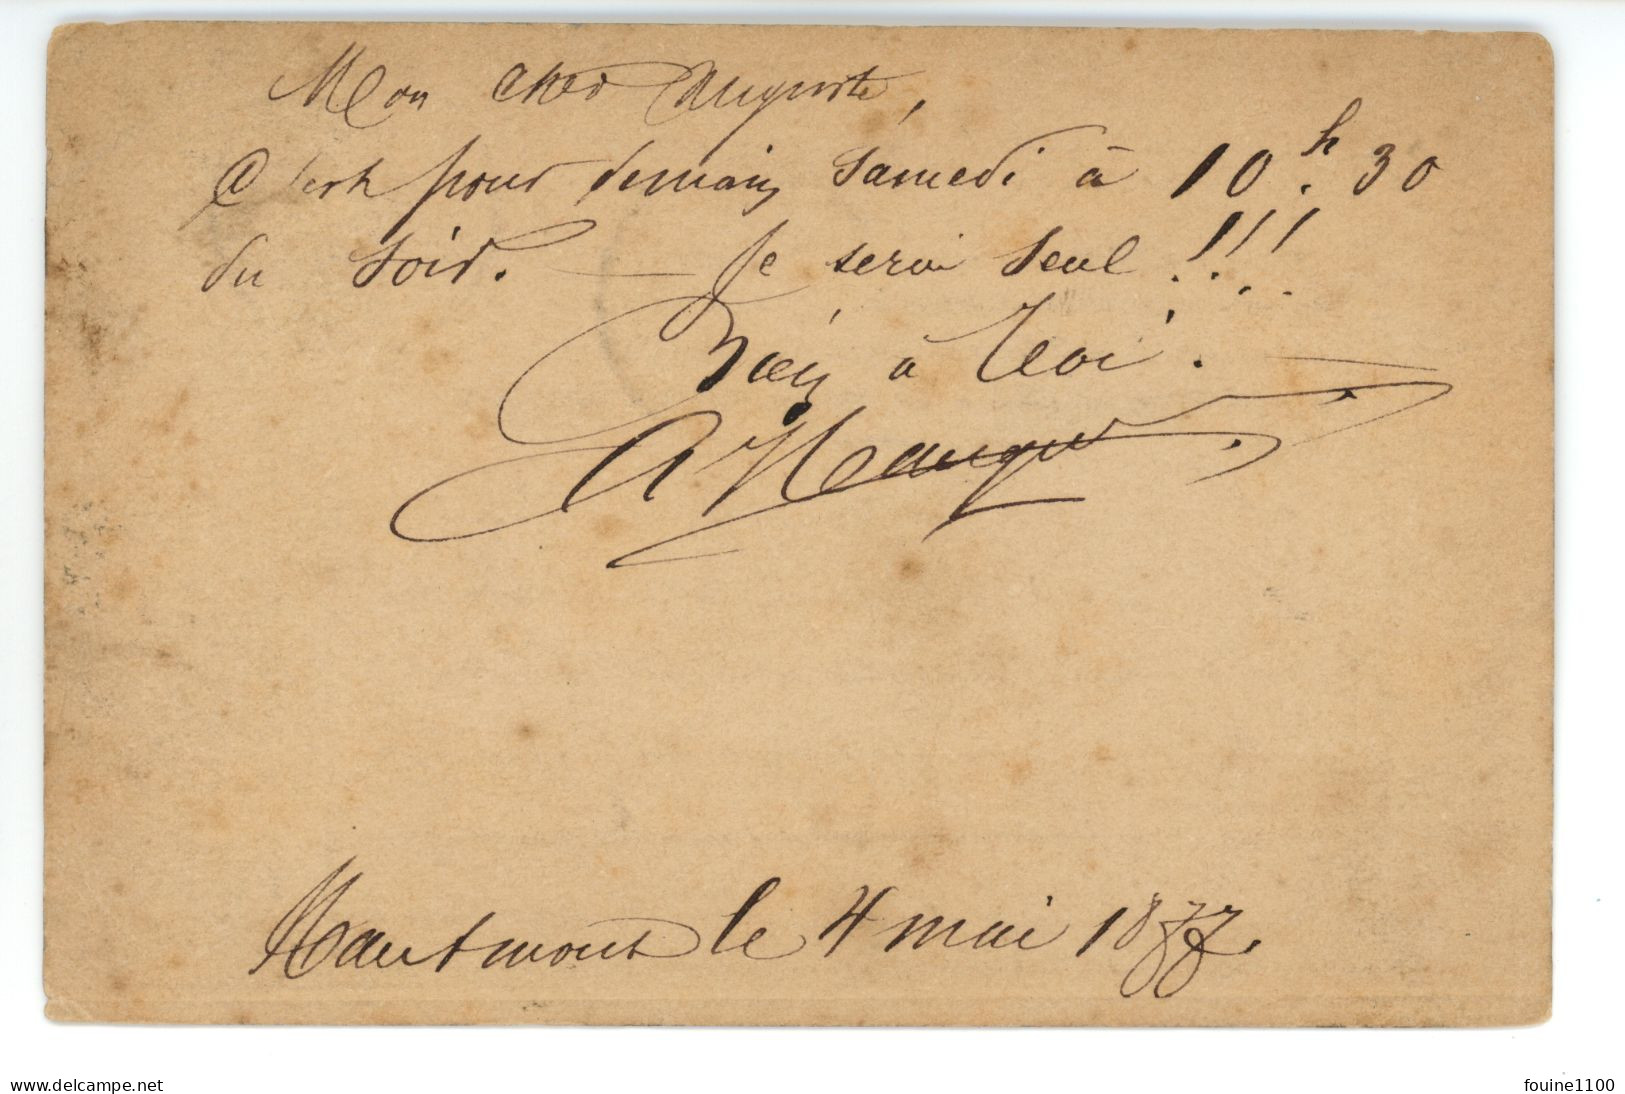 Mon cher Auguste,
C'est pour demain samedi à 10h. 30
du soir. — Je serai seul !!!
Bien à toi.
Hautmont le 4 mai 1877.
delcampe.net
fouine1100